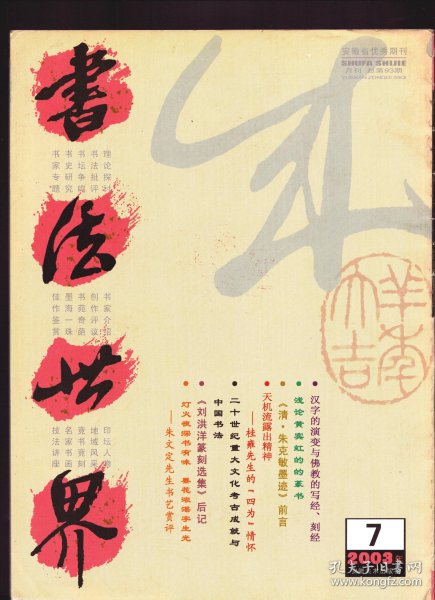 安徽省优秀期刊
SHUFA SHIJIE
月刊·总第93期
YUEKAN ZONGDI 93QI
書法世界
理论探讨
书法批评
书坛争鸣
书史研究
书家专题
书家介绍
创作评议
书苑奇葩
墨海一珠
佳作鉴赏
印坛人物
地域风采
瓷书瓷刻
名家书画
技法讲座
羊年
大吉祥
●汉字的演变与佛教的写经、刻经
●浅论黄宾虹的的篆书
●《清·朱克敏墨迹》前言
●天机流露出精神
——桂雍先生的“四为”情怀
●二十世纪重大文化考古成就与
中国书法
●《刘洪洋篆刻选集》后记
●灯火夜深书有味 墨花浓湛字生光
——朱文定先生书艺赏评
7
2003年
孔夫子旧书网
book.kongfz.com